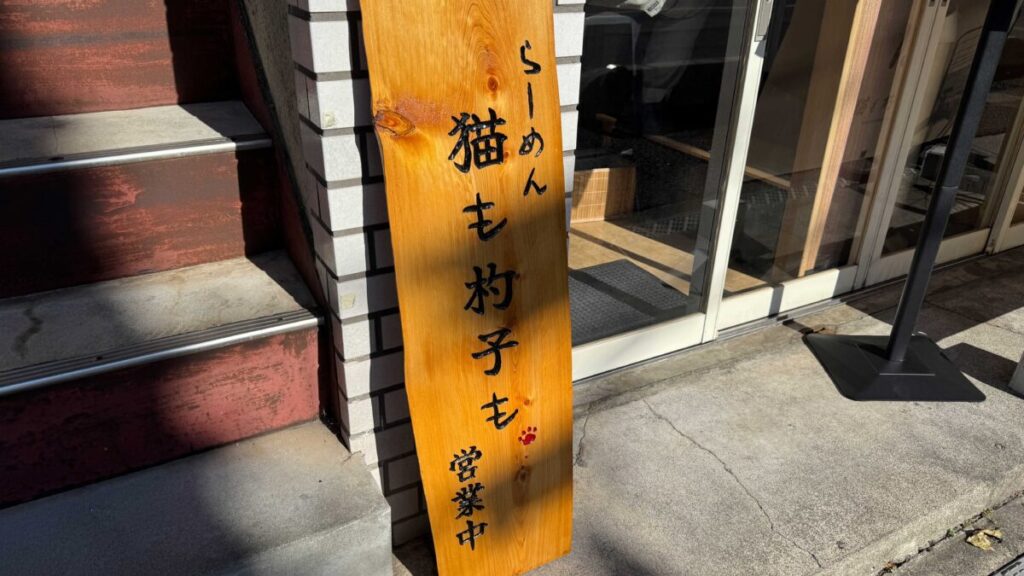 らーめん
猫も杓子も
営業中